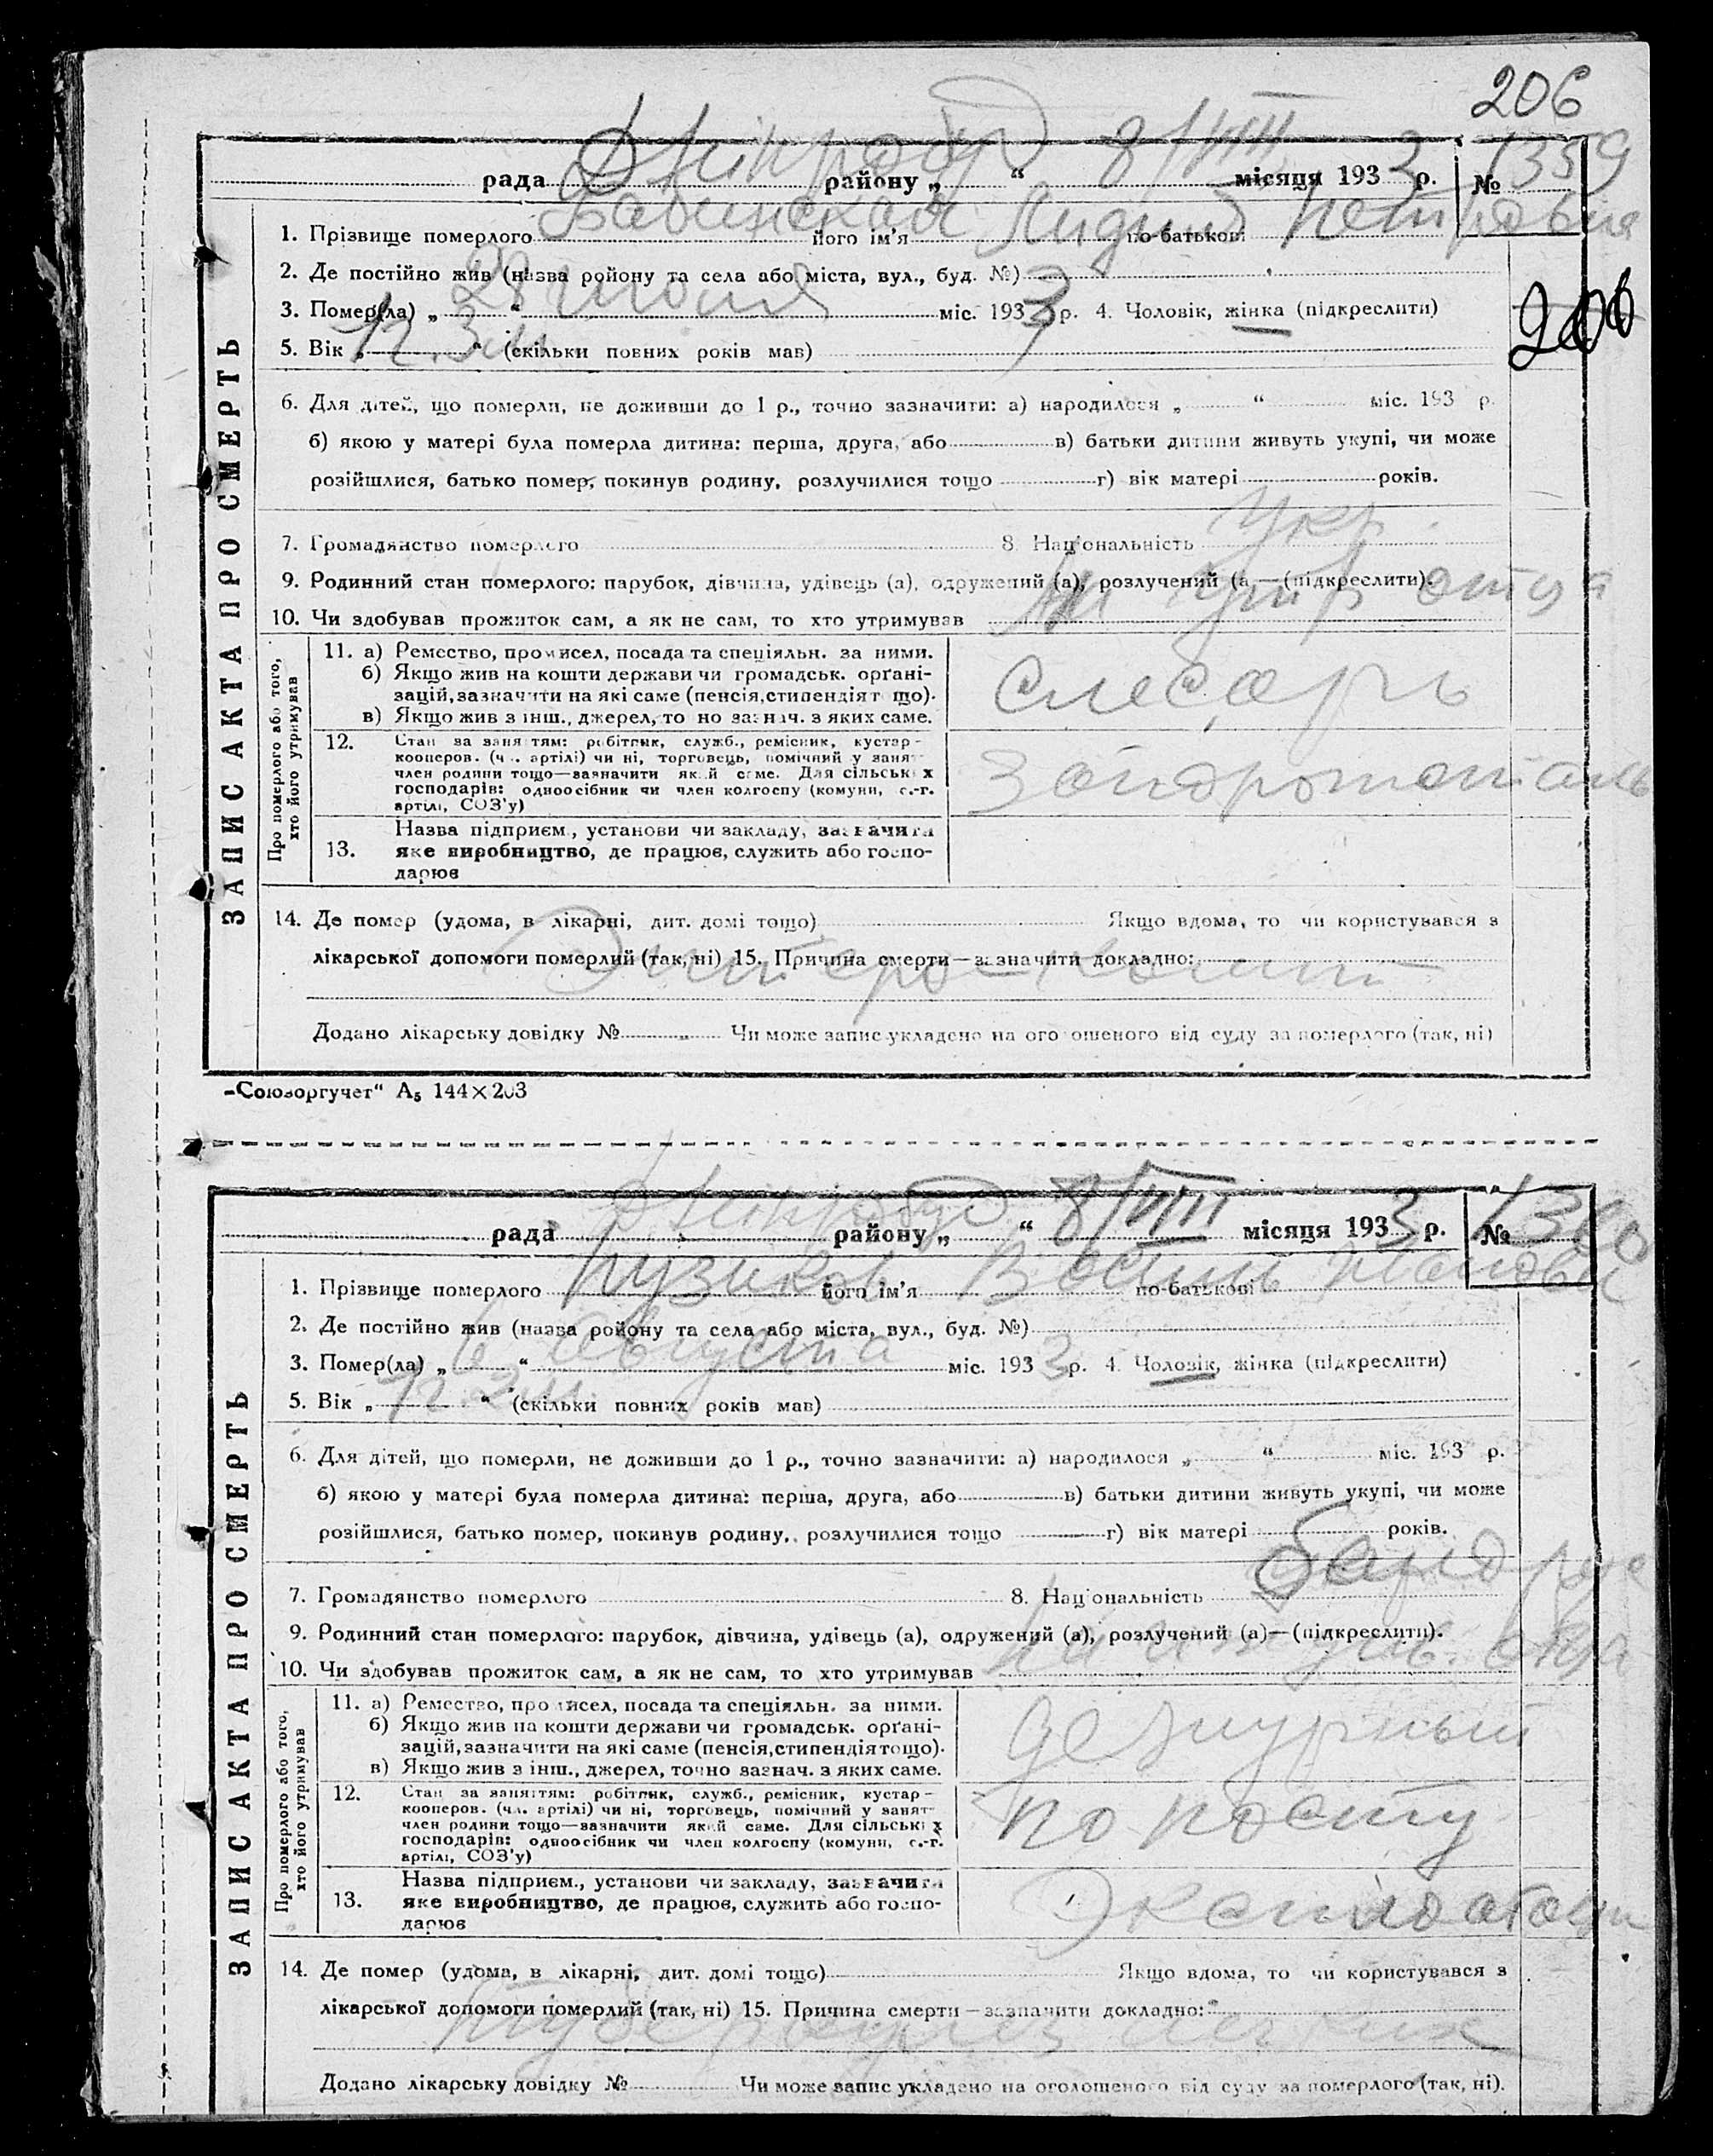 206
рада Дніпробуд району „ “ 8/VIII місяця 1933 р. № 1359
1. Прізвище померлого Бабинская його ім'я Лидия по-батькові Петровна
2. Де постійно жив (назва району та села або міста, вул., буд. №)
3. Помер(ла) „ 28 “ июля міс. 1933 р. 4. Чоловік, жінка (підкреслити)
206
5. Вік „ 1 г. 3 м. “ (скільки повних років мав)
6. Для дітей, що померли, не доживши до 1 р., точно зазначити: а) народилося „ “ міс. 193 р.
б) якою у матері була померла дитина: перша, друга, або в) батьки дитини живуть укупі, чи може
розійшлися, батько помер, покинув родину, розлучилися тощо г) вік матері років.
7. Громадянство померлого 8. Національність Укр.
9. Родинний стан померлого: парубок, дівчина, удівець (а), одружений (а), розлучений (а)—(підкреслити).
10. Чи здобував прожиток сам, а як не сам, то хто утримував отца
ЗАПИС АКТА ПРО СМЕРТЬ
Про померлого або того, хто його утримував
11. а) Ремество, промисел, посада та спеціяльн. за ними.
б) Якщо жив на кошти держави чи громадськ. орґані-
зацій, зазначити на які саме (пенсія, стипендія тощо).
в) Якщо жив з інш., джерел, точно зазнач. з яких саме.
слесарь
12. Стан за заняттям: робітник, служб., ремісник, кустар-
кооперов. (чл. артілі) чи ні, торговець, помічний у занят-
член родини тощо—зазначити який саме. Для сільських
господарів: одноосібник чи член колгоспу (комуни, с.-г.
артілі, СОЗ'у)
13. Назва підприєм., установи чи закладу, зазначити
яке виробництво, де працює, служить або госпо-
дарює
14. Де помер (удома, в лікарні, дит. домі тощо) Якщо вдома, то чи користувався з
лікарської допомоги померлий (так, ні) 15. Причина смерти—зазначити докладно:
Энтеро-колит
Додано лікарську довідку № Чи може запис укладено на оголошеного від суду за померлого (так, ні)
„Союзоргучет“ А₅ 144×203
рада Дніпробуд району „ “ 8/VIII місяця 1933 р. № 1360
1. Прізвище померлого Пузиков його ім'я по-батькові
2. Де постійно жив (назва району та села або міста, вул., буд. №)
3. Помер(ла) „ 6 “ августа міс. 1933 р. 4. Чоловік, жінка (підкреслити)
5. Вік „ 1 г. 2 м. “ (скільки повних років мав)
6. Для дітей, що померли, не доживши до 1 р., точно зазначити: а) народилося „ “ міс. 193 р.
б) якою у матері була померла дитина: перша, друга, або в) батьки дитини живуть укупі, чи може
розійшлися, батько помер, покинув родину, розлучилися тощо г) вік матері років.
7. Громадянство померлого 8. Національність
9. Родинний стан померлого: парубок, дівчина, удівець (а), одружений (а), розлучений (а)—(підкреслити).
10. Чи здобував прожиток сам, а як не сам, то хто утримував
ЗАПИС АКТА ПРО СМЕРТЬ
Про померлого або того, хто його утримував
11. а) Ремество, промисел, посада та спеціяльн. за ними.
б) Якщо жив на кошти держави чи громадськ. орґані-
зацій, зазначити на які саме (пенсія, стипендія тощо).
в) Якщо жив з інш., джерел, точно зазнач. з яких саме.
дежурный
12. Стан за заняттям: робітник, служб., ремісник, кустар-
кооперов. (чл. артілі) чи ні, торговець, помічний у занят-
член родини тощо—зазначити який саме. Для сільських
господарів: одноосібник чи член колгоспу (комуни, с.-г.
артілі, СОЗ'у)
по посту
13. Назва підприєм., установи чи закладу, зазначити
яке виробництво, де працює, служить або госпо-
дарює
14. Де помер (удома, в лікарні, дит. домі тощо) Якщо вдома, то чи користувався з
лікарської допомоги померлий (так, ні) 15. Причина смерти—зазначити докладно:
Туберкулез легких
Додано лікарську довідку № Чи може запис укладено на оголошеного від суду за померлого (так, ні).